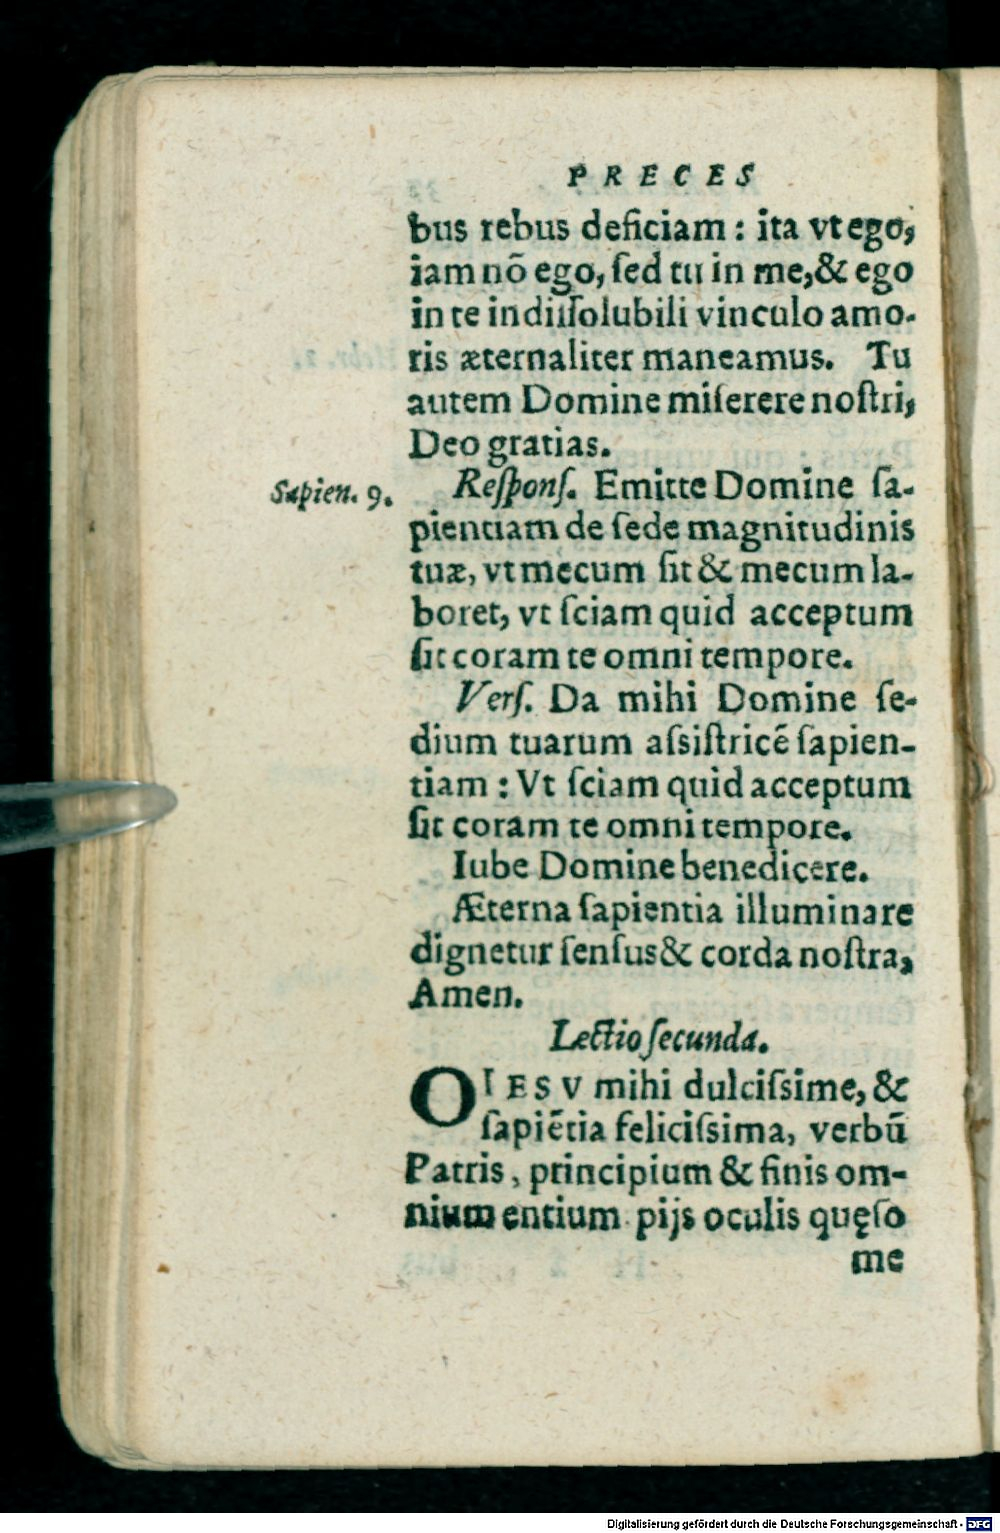 PRECES
bus rebus deficiam : ita vt ego,
iam nō ego, ſed tu in me,& ego
in te indiſſolubili vinculo amo-
ris æternaliter maneamus. Tu
autem Domine miſerere noſtri,
Deo gratias.
Sapien. 9.
Reſponſ. Emitte Domine ſa-
pientiam de ſede magnitudinis
tuæ, vt mecum ſit & mecum la-
boret, vt ſciam quid acceptum
ſit coram te omni tempore.
Verſ. Da mihi Domine ſe-
dium tuarum aſsiſtricē ſapien-
tiam : Vt ſciam quid acceptum
ſit coram te omni tempore.
Iube Domine benedicere.
Æterna ſapientia illuminare
dignetur ſenſus & corda noſtra,
Amen.
Lectio ſecunda.
O IESV mihi dulciſsime, &
ſapiētia feliciſsima, verbū
Patris, principium & finis om-
nium entium pijs oculis quęſo
me
Digitalisierung gefördert durch die Deutsche Forschungsgemeinschaft - DFG